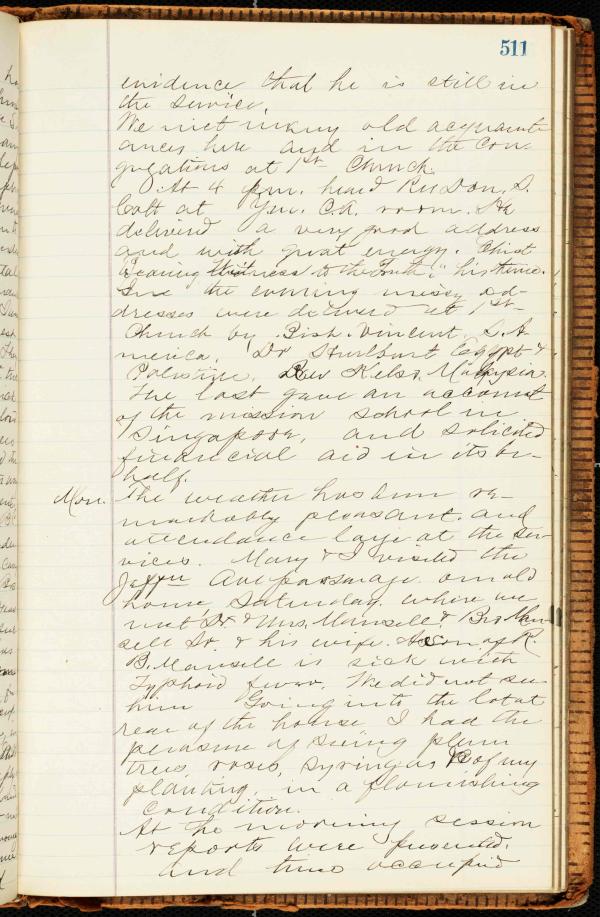 511
evidence that he is still in
the service.
We met many old acquaint
ances here and in the con-
gregations at 1st Church.
At 4 p.m. heard Rev Don. S.
Colt at Y.m. C.A. room. He
delivered a very good address
and with great energy. Christ
"Bearing Witness to the Truth", his theme.
In the evening missy ad-
dresses were delivered at 1st
Church by Bish. Vincent, S. A-
merica, Dr Hurlburt Egypt &
Palestine, Rev Kelso, Malaysia.
The last gave an account
of the mission school in
Singapoor, and solicited
financial aid in its be-
half.
Mon. The weather has been re-
markably pleasant and
attendance large at the ser-
vices. Mary & I visited the
Jeffer Ave parsonage our old
home, Saturday where we
met Dr & Mrs. Mansell & Bro Man
sell Sr. & his wife. A son of R.
B. Mansell is sick with
Typhoid fever. We did not see
him Going into the lot at
rear of the house I had the
pleasure of seeing plum
trees, roses, syringas &c of my
planting, in a flourishing
condition.
At the morning session
reports were presented,
and time occupied